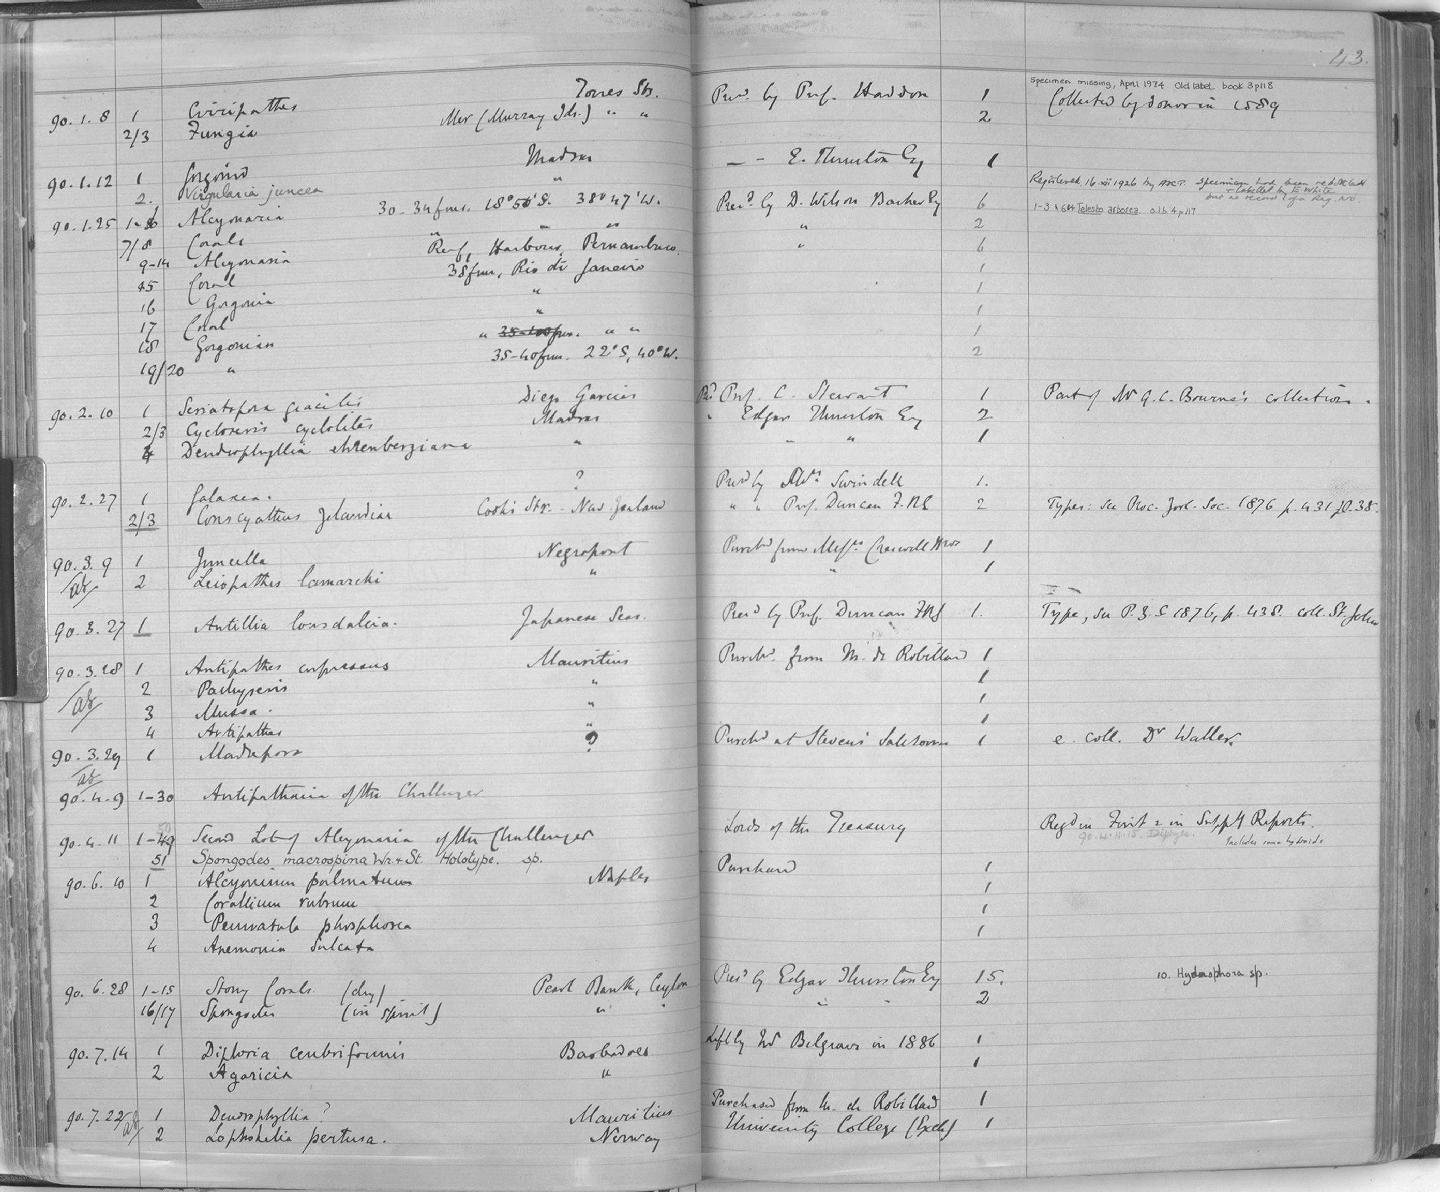 43.
Torres Str. Specimen missing, April 1974 Old label book 3 p118
90.1.8 1 Cirripathes Pres.d by Prof. Haddon 1 Collected by donor in 1889
2/3 Fungia Mer (Murray Ids.) " " 2
Madras
90.1.12 1 Gorgonia — - E. Thurston Esq 1
2. Virgularia juncea " Registered 16 xii 1926 by AKT. Specimen had been
90.1.25 Alcyonaria 30-34 fms. 18°56'S. 38°47'W. Pres.d by D. Wilson Barker Esq 6 Telesto arborea o.l.b 4 p117
7/8 Corals " " " " 2
9-14 Alcyonaria Reef, Harbour, Pernambuco. " 6
15 Coral 38 fms, Rio de Janeiro 1
16 Gorgonia " 1
17 Coral " 1
18 Gorgonian " 35-40 fms. " " 1
19/20 " 35-40 fms. 22°S, 40°W. 2
90.2.10 1 Seriatopora gracilis Diego Garcia Pd. Prof. C. Stewart 1 Part of Mr G.C. Bourne's collection.
2/3 Cycloseris cyclolites Madras " Edgar Thurston Esq 2
4 Dendrophyllia ehrenbergiana " " " 1
90.2.27 1 Galaxea. ? Pres.d by Swindell 1.
2/3 Conocyathus Zelandiae Cooks Str. - New Zealand " " Prof. Duncan F.R.S 2 Types: see Proc. Zool. Soc. 1876 p. 431 pl. 38.
90.3.9 1 Juncella Negropont Purch.d from Messrs 1
2 Leiopathes lamarcki " " 1
90.3.27 1 Antillia lonsdaleia. Japanese Seas. Pres.d by Prof. Duncan FRS 1. Type, see P.Z.S 1876, p. 438. coll. St. John
90.3.28 1 Antipathes cupressus Mauritius Purch.d from M. de Robillard 1
2 Pachyseris " 1
3 Mussa. " 1
4 Antipathes " 1
90.3.29 1 Madrepora ? Purch.d at Stevens' Salerooms 1 e. coll. Dr Waller.
90.4.9 1-30 Antipatharia of the Challenger
90.4.11 1-49 Second Lot of Alcyonaria of the Challenger Lords of the Treasury Regd in First & in Suppl Reports.
51 Spongodes macrospina Wr & St. Holotype. sp. Includes some hydroids
90.6.10 1 Alcyonium palmatum Naples Purchased 1
2 Corallium rubrum 1
3 Pennatula phosphorea 1
4 Anemonia sulcata 1
90.6.28 1-15 Stony Corals (dry) Pearl Bank, Ceylon Pres.d by Edgar Thurston Esq 15. 10. Hydnophora sp.
16/17 Spongodes (in spirit) " " " " 2
90.7.14 1 Diploria cerebriformis Barbadoes Left by Mr Belgrave in 1886 1
2 Agaricia " 1
90.7.22 1 Dendrophyllia? Mauritius Purchased from M. de Robillard 1
2 Lophohelia pertusa. Norway University College (Exch) 1